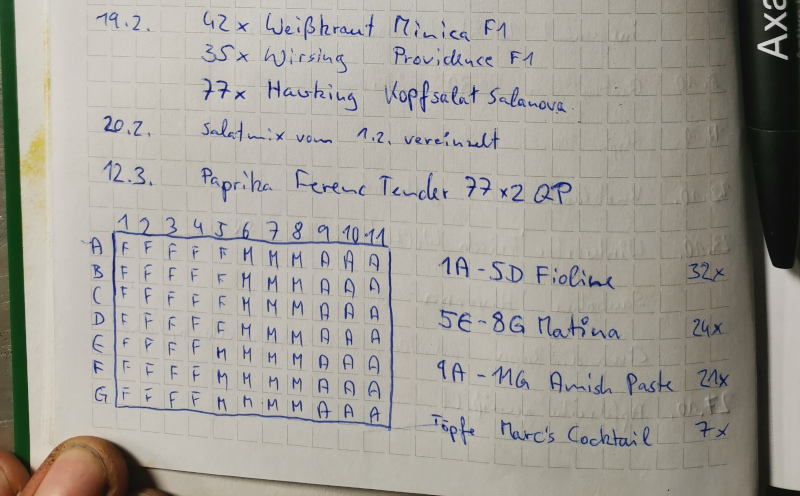 19.2. 42x Weißkraut Minica F1
35x Wirsing Providence F1
77x Hawking Kopfsalat Salanova
20.2. Salatmix vom 1.2. vereinzelt
12.3. Paprika Ferenc Tender 77x2 QP
1 2 3 4 5 6 7 8 9 10 11
A F F F F F M M M A A A
B F F F F F M M M A A A
C F F F F F M M M A A A
D F F F F F M M M A A A
E F F F F M M M M A A A
F F F F F M M M M A A A
G F F F F M M M M A A A
1A-5D Fioline 32x
5E-8G Matina 24x
9A-11G Amish Paste 21x
Töpfe Marc's Cocktail 7x
Axa